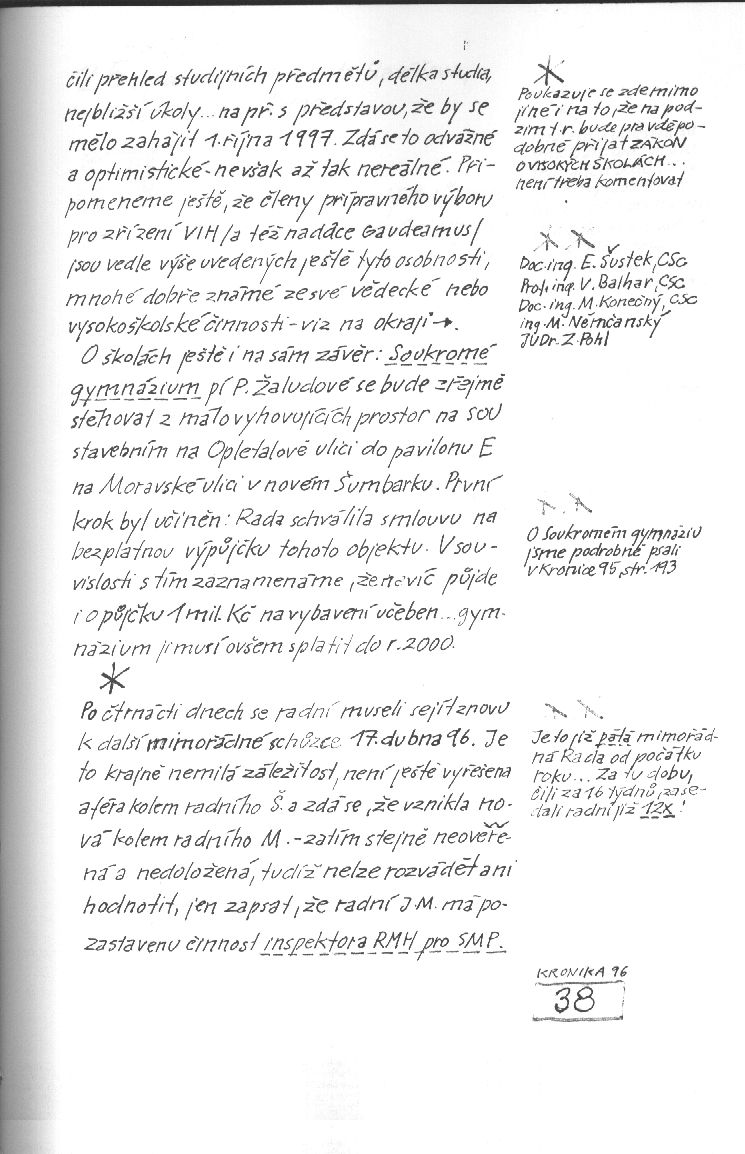 čili přehled studijních předmětů, délka studia,
nejbližší úkoly... na př. s představou, že by se
mělo zahájit 1. října 1997. Zdá se to odvážné
a optimistické - nevšak až tak nereálné. Při-
pomeneme ještě, že členy přípravného výboru
pro zřízení VIH /a též nadace Gaudeamus/
jsou vedle výše uvedených ještě tyto osobnosti,
mnohé dobře známé ze své vědecké nebo
vysokoškolské činnosti - viz na okraji →.
O školách ještě i na sám závěr: Soukromé
gymnázium pí P. Žaludové se bude zřejmě
stěhovat z málo vyhovujících prostor na SOU
stavebním na Opletalově ulici do pavilonu E
na Moravské ulici v novém Šumbarku. První
krok byl učiněn: Rada schválila smlouvu na
bezplatnou výpůjčku tohoto objektu. V sou-
vislosti s tím zaznamenáme, že navíc půjde
i o půjčku 1 mil. Kč na vybavení učeben... gym-
názium ji musí ovšem splatit do r. 2000.
*
Po čtrnácti dnech se radní museli sejít znovu
k další mimořádné schůzce 17. dubna 96. Je
to krajně nemilá záležitost, není ještě vyřešena
aféra kolem radního Š. a zdá se, že vznikla no-
vá kolem radního M. - zatím stejně neověře-
ná a nedoložená, tudíž nelze rozvádět ani
hodnotit, jen zapsat, že radní J.M. má po-
zastavenu činnost inspektora RMH pro SMP.
*
Poukazuje se zde mimo
jiné i na to, že na pod-
zim t.r. bude pravděpo-
dobně přijat ZÁKON
O VYSOKÝCH ŠKOLÁCH...
není třeba komentovat
Doc. ing. E. Šustek, CSc
Prof. ing. V. Balhar, CSc
Doc. ing. M. Konečný, CSc
ing. M. Němčanský
JUDr. Z. Pohl
O Soukromém gymnáziu
jsme podrobně psali
v Kronice 95, str. 193
Je to již pátá mimořád-
ná Rada od počátku
roku... Za tu dobu,
čili za 16 týdnů, zase-
dali radní již 12x!
KRONIKA 96
38